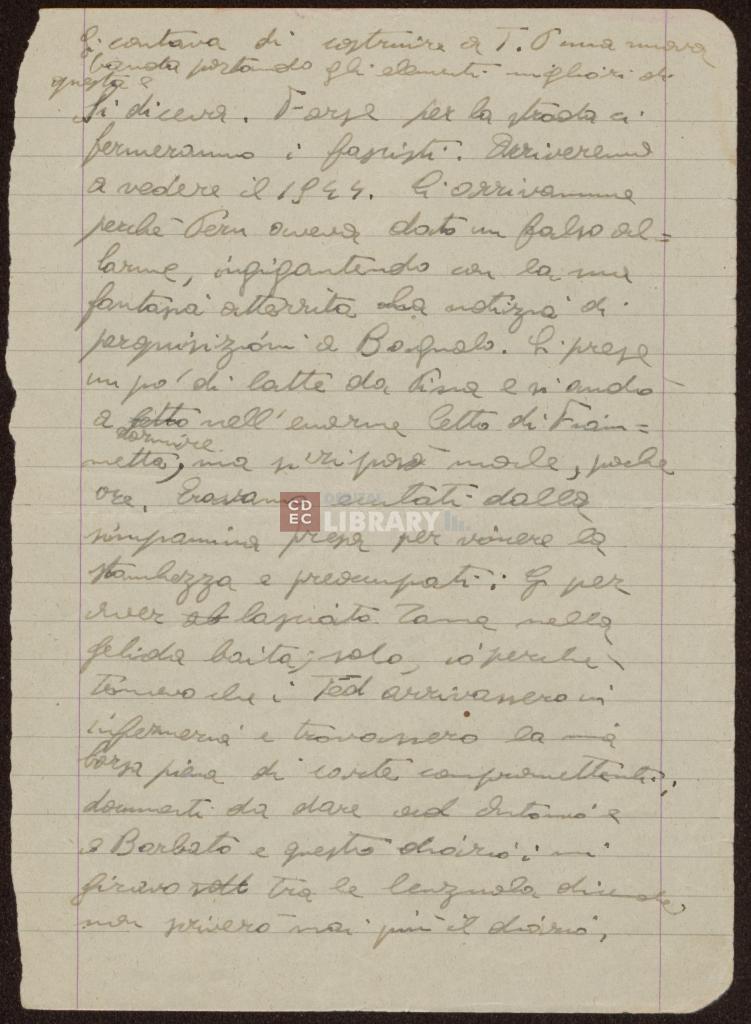 Si contava di costruire a T. P una nuova
banda portando gli elementi migliori di
questa e
Si diceva. Forse per la strada ci
fermeranno i fascisti. Arriveremo
a vedere il 1944. Ci arrivammo
perchè aveva dato un falso al=
larme, ingigantendo con la sua
fantasia atterrita la notizia di
perquisizioni a Bagnolo. Si prese
un po' di latte da e si andò
a letto nell'enorme letto di Fiam=
dormire
metta, ma si riposò male, poche
ore. Eravamo eccitati dalla
simpamina presa per vincere la
stanchezza e preoccupati: G per
aver lasciato nella
gelida baita, solo, io perchè
temevo che i Ted arrivassero in
infermeria e trovassero la mia
borsa piena di carte compromettenti;
documenti da dare ad Antonio e
a Barbato e questo diario; mi
giravo tra le lenzuola dicendo,
non scriverò mai più il diario,
CD
EC
DIGITAL
LIBRARY